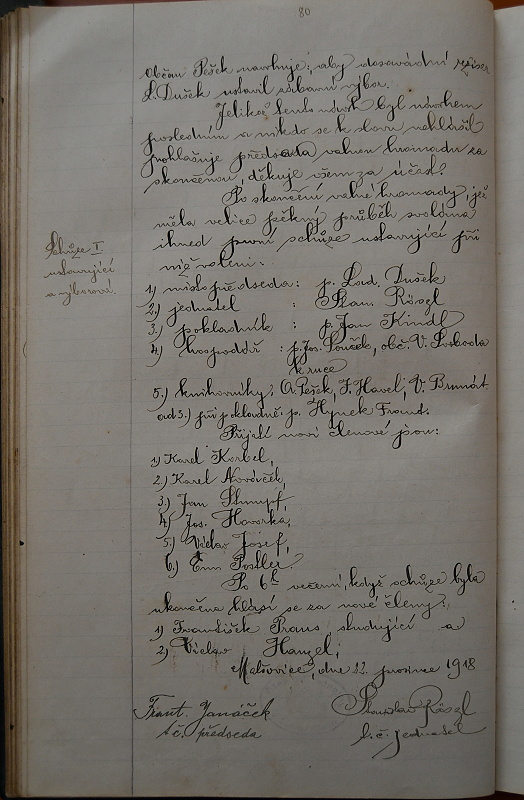 80
Občan Pešek navrhuje, aby dosavádní režisér
L. Dušek ustavil zábavní výbor.
Jelikož tento návrh byl návrhem
posledním a nikdo se k slovu nehlásil
prohlašuje předseda valnou hromadu za
skončenou, děkuje všem za účast.
Po skončení valné hromady, jež
měla velice pěkný průběh svolána
ihned první schůze ustavující při
níž voleni:
Schůze I
ustavující
a výborová.
1) místopředseda: p. Lad. Dušek
2.) jednatel : Stan. Rössl
3.) pokladník : p. Jan Kindl
4) hospodář : p. Jos. Souček, obč. V. Svoboda
k ruce
5.) knihovníky: A. Pešek, J. Havel, V. Brunát
ad 3.) při pokladně: p. Hynek Frant.
Přijatí noví členové jsou:
1.) Karel Korbel,
2.) Karel Nováček,
3.) Jan Stumpf,
4.) Jos. Hovorka,
5.) Václav Josef,
6.) Em. Postler.
Po 6 h večerní, když schůze byla
ukončena hlásí se za nové členy:
1) František Praus studující a
2.) Václav Hanzel,
Malšovice, dne 22. prosince 1918
Frant. Janáček
t. č. předseda
Stanislav Rössl
t. č. jednatel